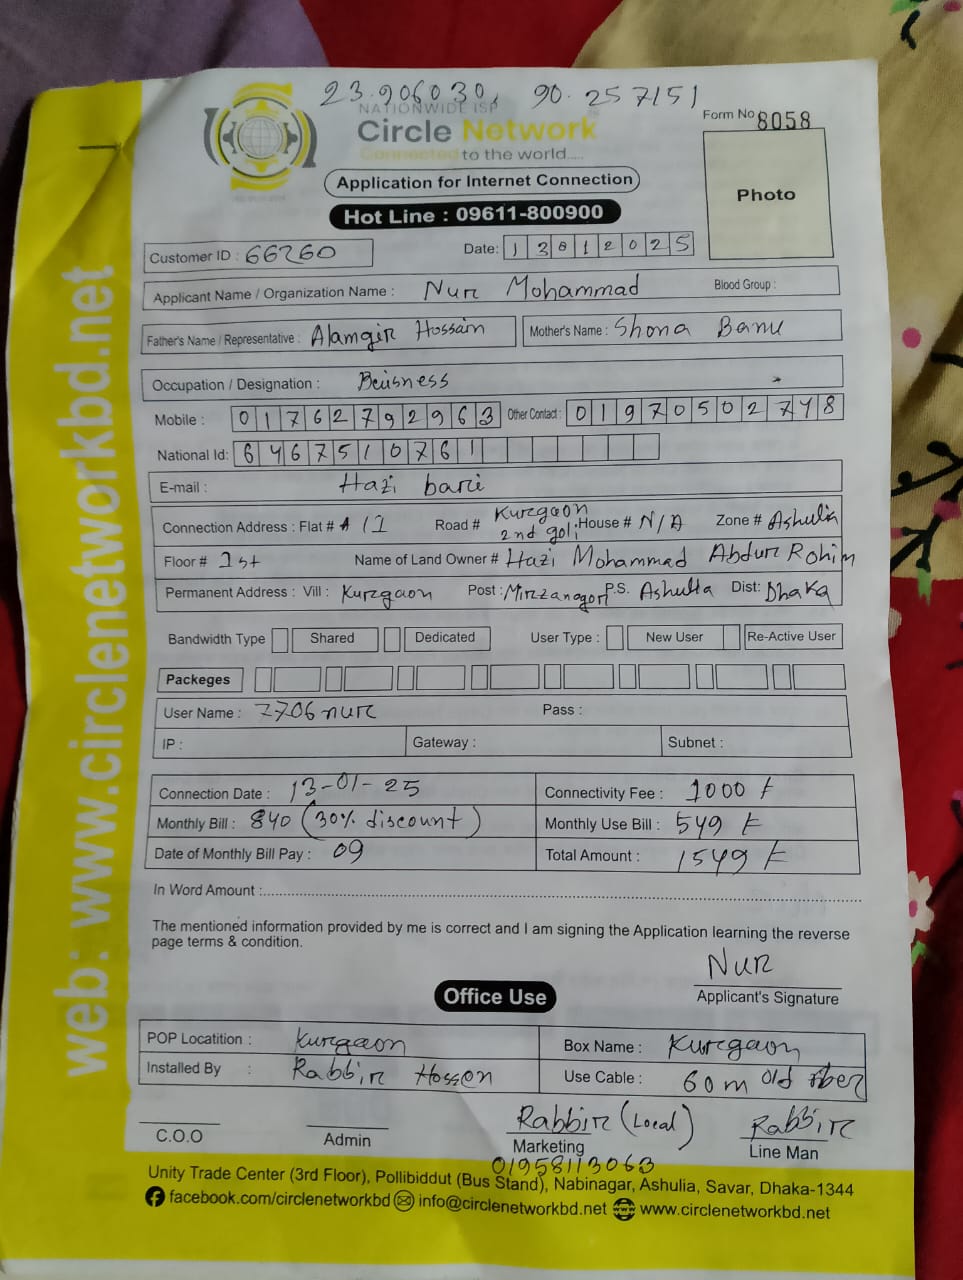 23.906030, 90.257151
NATIONWIDE ISP
Circle Network
Connected to the world.....
Form No 8058
Photo
Application for Internet Connection
Hot Line : 09611-800900
Customer ID : 66260 Date: 13012025
Applicant Name / Organization Name : Nur Mohammad Blood Group :
Father's Name / Representative : Alamgir Hossain Mother's Name : Shona Banu
Occupation / Designation : Beusness
Mobile : 01762792963 Other Contact : 01970502748
National Id: 6467510761
E-mail : Hazi bari
Connection Address : Flat # A/1 Road # Kurgaon 2nd goli House # N/A Zone # Ashulia
Floor # 1st Name of Land Owner # Hazi Mohammad Abdur Rohim
Permanent Address : Vill : Kurgaon Post : Mirzanagor P.S. Ashulia Dist: Dhaka
Bandwidth Type Shared Dedicated User Type : New User Re-Active User
Packeges
User Name : 7706nur Pass :
IP : Gateway : Subnet :
Connection Date : 13-01-25 Connectivity Fee : 1000 t
Monthly Bill : 840 (30% discount) Monthly Use Bill : 549 t
Date of Monthly Bill Pay : 09 Total Amount : 1549 t
In Word Amount :
The mentioned information provided by me is correct and I am signing the Application learning the reverse
page terms & condition.
Nur
Applicant's Signature
Office Use
POP Locatition : Kurgaon Box Name : Kurgaon
Installed By : Rabbir Hossen Use Cable : 60m old fiber
Rabbir (Local) Rabbir
C.O.O Admin Marketing Line Man
01958113063
Unity Trade Center (3rd Floor), Pollibiddut (Bus Stand), Nabinagar, Ashulia, Savar, Dhaka-1344
facebook.com/circlenetworkbd info@circlenetworkbd.net www.circlenetworkbd.net
web: www.circlenetworkbd.net